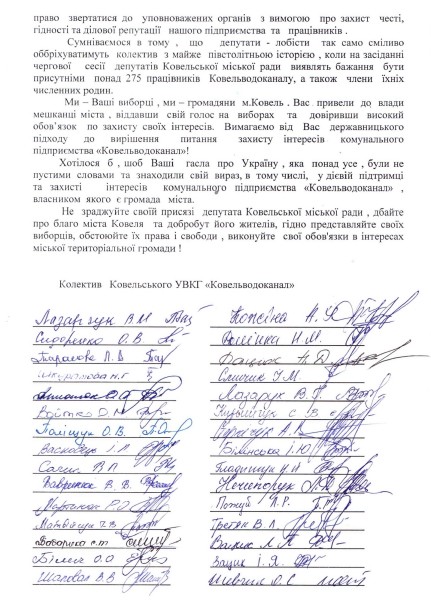 право звертатися до уповноважених органів з вимогою про захист честі,
гідності та ділової репутації нашого підприємства та працівників .
Сумніваємося в тому , що депутати - лобісти так само сміливо
оббріхуватимуть колектив з майже півстолітньою історією , коли на засіданні
чергової сесії депутатів Ковельської міської ради виявлять бажання бути
присутніми понад 275 працівників Ковельводоканалу, а також члени їхніх
численних родин.
Ми – Ваші виборці , ми – громадяни м.Ковель . Вас привели до влади
мешканці міста , віддавши свій голос на виборах та довіривши високий
обов’язок по захисту своїх інтересів. Вимагаємо від Вас державницького
підходу до вирішення питання захисту інтересів комунального
підприємства «Ковельводоканал»!
Хотілося б , шоб Ваші гасла про Україну , яка понад усе , були не
пустими словами та знаходили свій вираз, в тому числі, у дієвій підтримці
та захисті інтересів комунального підприємства «Ковельводоканал» ,
власником якого є громада міста.
Не зраджуйте своїй присязі депутата Ковельської міської ради , дбайте
про благо міста Ковеля та добробут його жителів, гідно представляйте своїх
виборців, обстоюйте їх права і свободи , виконуйте свої обов'язки в інтересах
міської територіальної громади !
Колектив Ковельського УВКГ «Ковельводоканал»
Лазарчук В.М
Сидоренко О.В.
Тарасова Л.В
Шкуратова Н.Г
Войтко О.
Поліщук О.В.
Васковець І.Л
Сачик В.П
Вавринюк В. В.
Мартинюк Р.О
Матвійчук
Більчик О.О
Шаповал В.В
Н.М.
Слинчик Т.М
Лазарук В.
С. В
Білинська І. Ю
Гладищук Н.Н
Нечепорук
Л.Р.
Третяк В.Л
Л.Л
Зацик І. Я.
Шевчик О.С